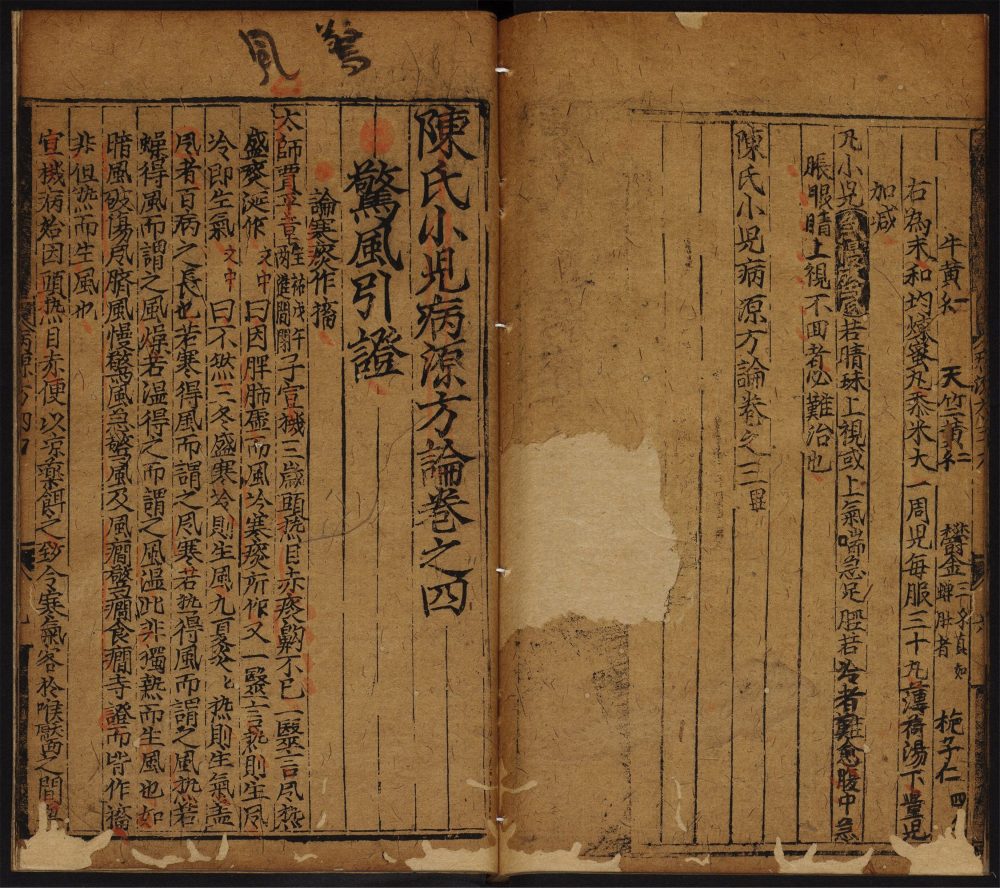 牛黄一 天竺黄二 欝金三 梔子仁四
右為末和均煉蜜丸黍米大一周児毎服三十丸薄荷湯下量児
加减
凡小児 若睛球上視或上氣喘急足脛若冷者難愈腹中急
脹眼睛上視不回者必難治也
陳氏小児病源方論巻之三畢
驚風
陳氏小児病源方論巻之四
驚風引證
論寒痰作搐
太師賈平章 子宣機三歲頭熱目赤痰齁不已一醫言風熱
盛痰涎作 文中曰因脾肺虚而風冷寒痰所作又一醫言熱則生風
冷即生氣 文中曰不然三冬盛寒冷則生風九夏炎炎熱則生氣盖
風者百病之長也若寒得風而謂之風寒若熱得風而謂之風熱若
燥得風而謂之風燥若温得之而謂之風温此非獨熱而生風也如
暗風破傷風臍風慢驚風急驚風及風癇驚癇食癇等證而皆作搐
非但熱而生風也
宣機病始因頭熱目赤便以凉藥餌之致令寒氣客於喉醫之間